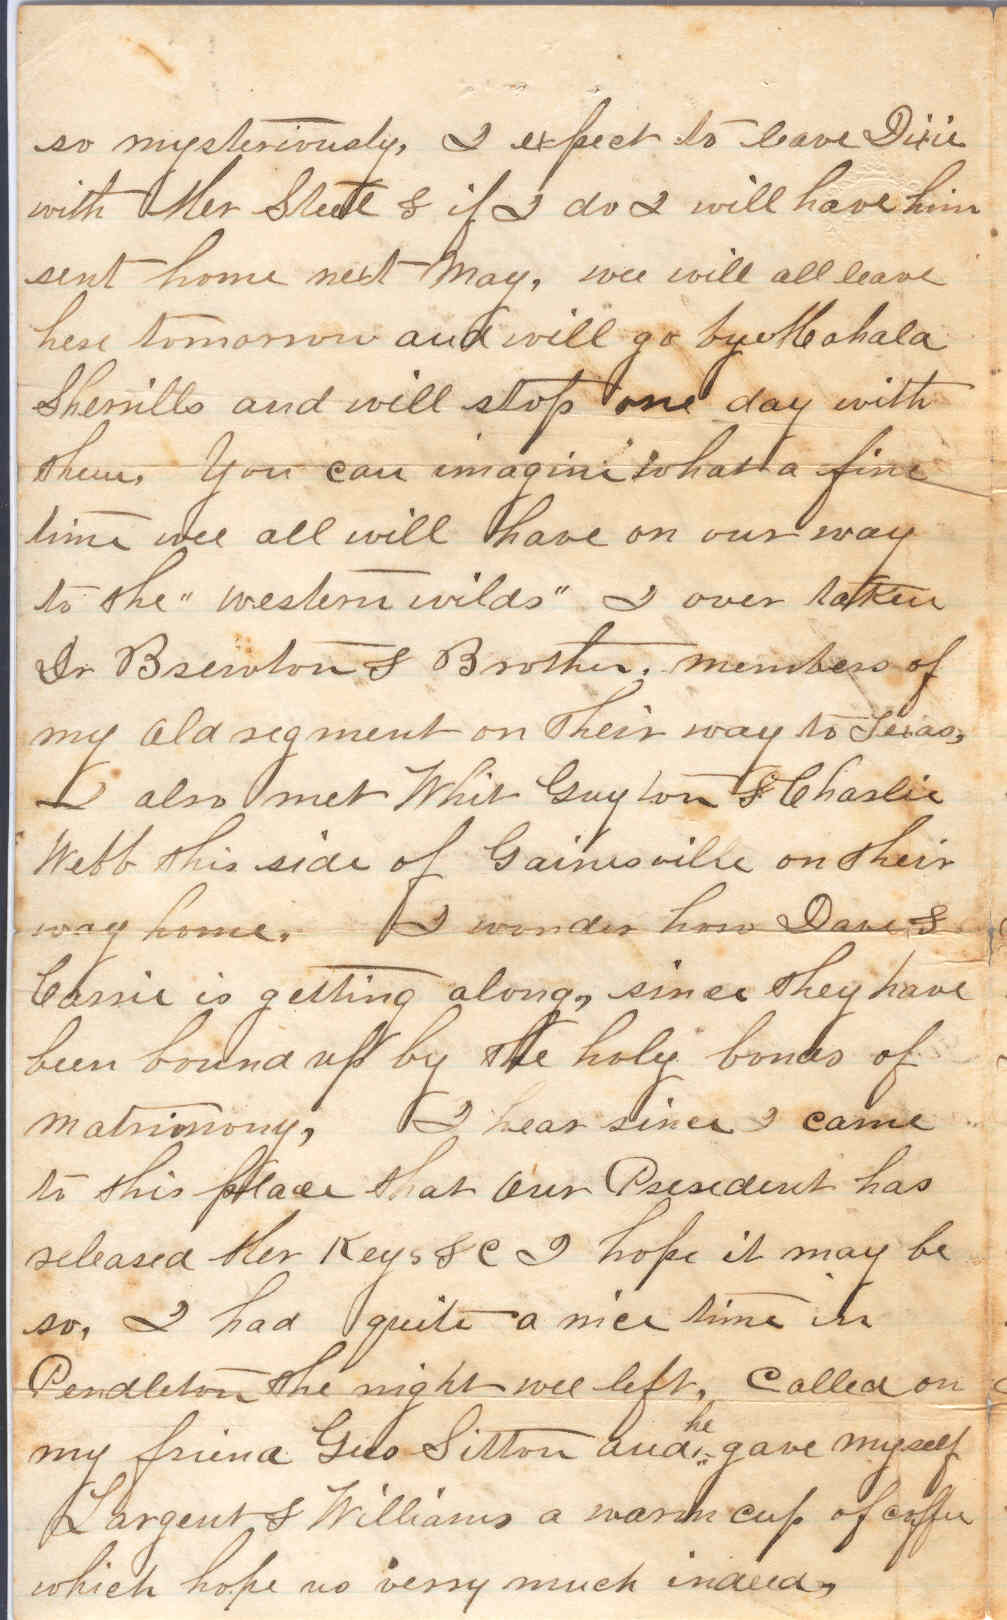 so mysteriously, I expect to leave Dixie
with Mer Steele & if I do I will have him
sent home next May, wee will all leave
here tomorrow and will go by Mahala
Sherrills and will stop one day with
them. You can imagine what a fine
time wee all will have on our way
to the "western wilds" I over taken
Dr Brewton & Brother, members of
my old regment on their way to Texas,
I also met Whit Guyton & Charlie
Webb this side of Gainesville on their
way home. I wonder how Dave &
Cassie is getting along, since they have
been bound up by the holy bonds of
matrimony, I hear since I came
to this place that our Presedent has
released Mer Keys &C I hope it may be
so, I had quite a nice time in
Pendleton the night wee left, Called on
my friend Geo Sitton and he gave myself
Largent & Williams a warm cup of coffee
which hope us verry much indeed,